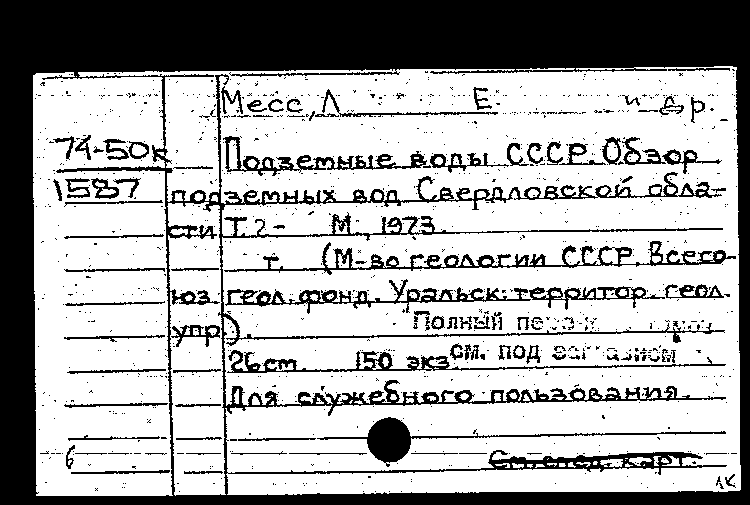 Месс, Л Е. и др.
74-50к
1587
Подземные воды СССР. Обзор
подземных вод Свердловской обла-
сти Т. 2- М., 1973.
т. (М-во геологии СССР. Всесо-
юз. геол. фонд. Уральск. территор. геол.
упр).
Полный
26см. 150 экз
см. под заглавием
Для служебного пользования.
6
См. след. карт.
1К